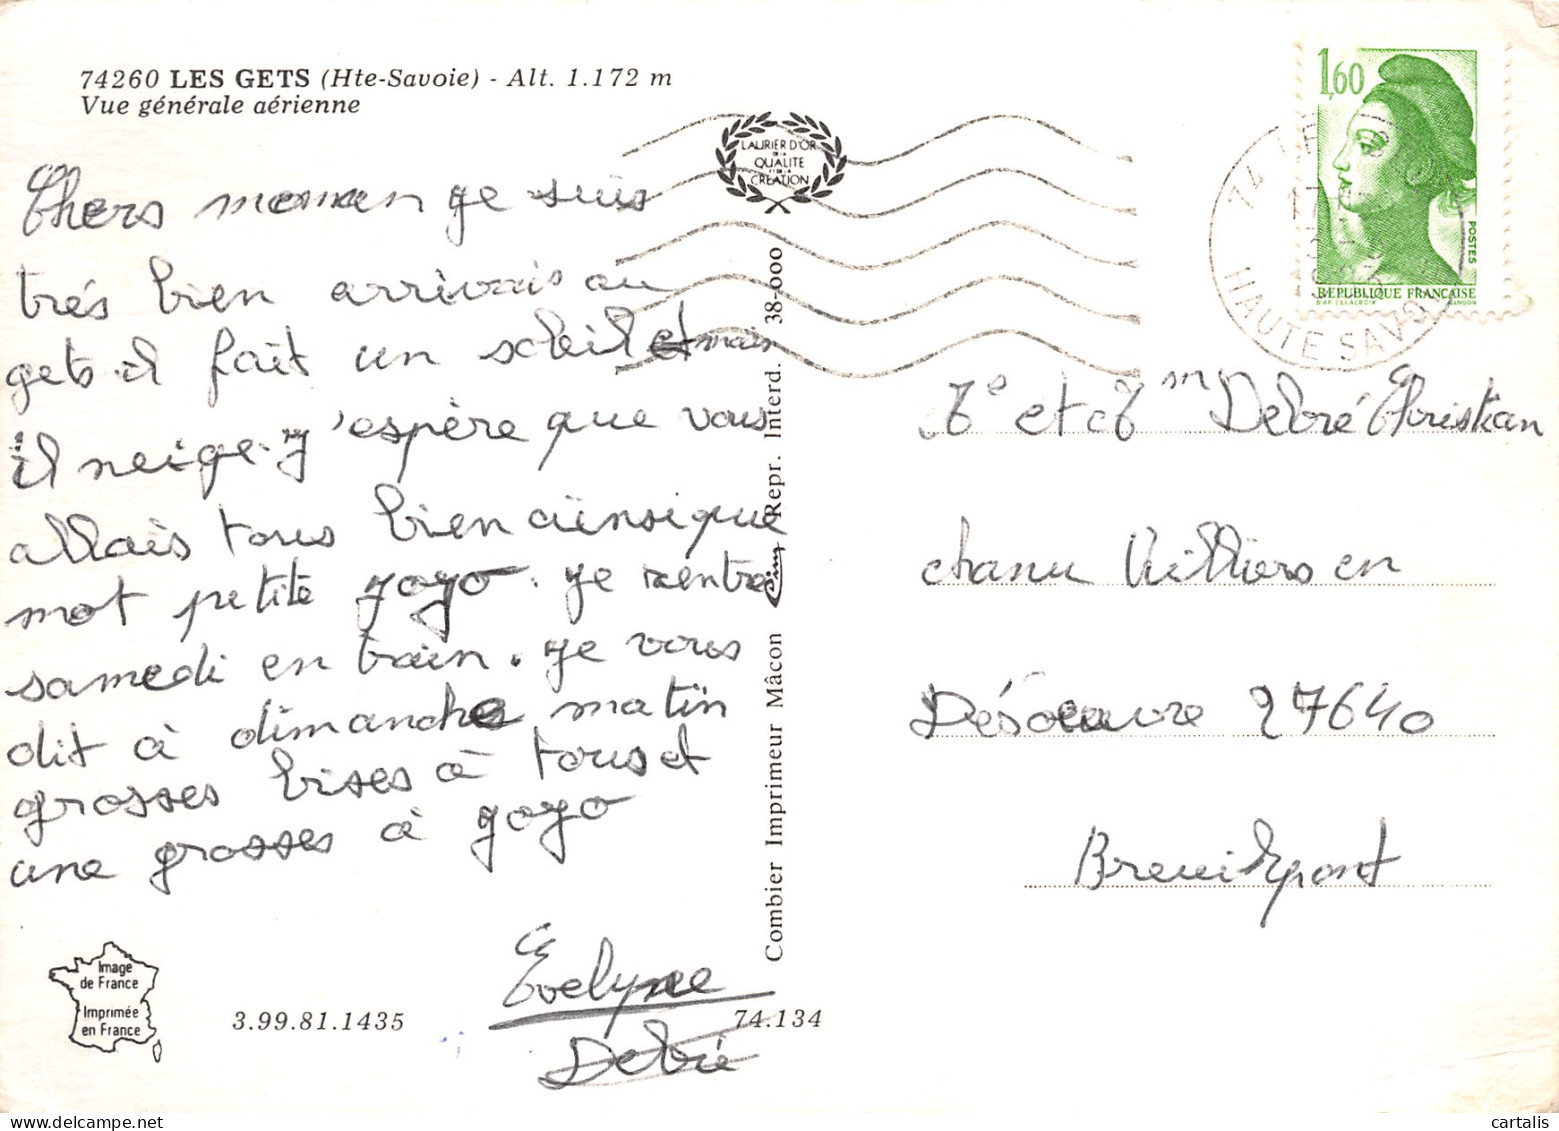 74260 LES GETS (Hte-Savoie) - Alt. 1.172 m
Vue générale aérienne
Chers maman je suis
très bien arrivais au
gets il fait un soleil et mais
il neige. j'espère que vous
allais tous bien ainsique
mot petite yoyo. je rentre
samedi en train. je vous
dit à dimanche matin
grosses bises à tous et
une grosses à yoyo
Evelyne
Debré
Image
de France
Imprimée
en France
3.99.81.1435
74.134
LAURIER D'OR
DE LA
QUALITE
ET DE LA
CREATION
Combier Imprimeur Mâcon Cim Repr. Interd. 38-000
1,60
POSTES
REPUBLIQUE FRANÇAISE
D'AP. DELACROIX GANDON
74 LES
17
HAUTE SAVOIE
et Debré Christian
chanu Villiers en
Désoeuvre 27640
Breuilpont
cartalis